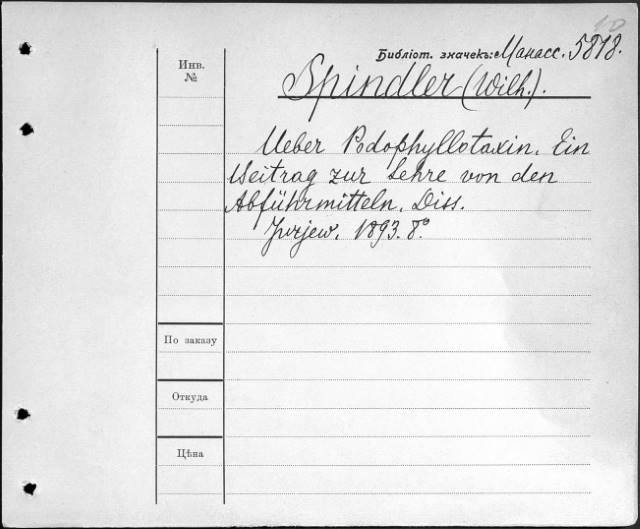 Библіот. значекъ: Манасс. 5878.
Инв.
№
Spindler (Wilh.).
Ueber Podophyllotoxin. Ein
Beitrag zur Lehre von den
Abführmitteln. Diss.
Jurjew. 1893. 8°.
По заказу
Откуда
Цѣна